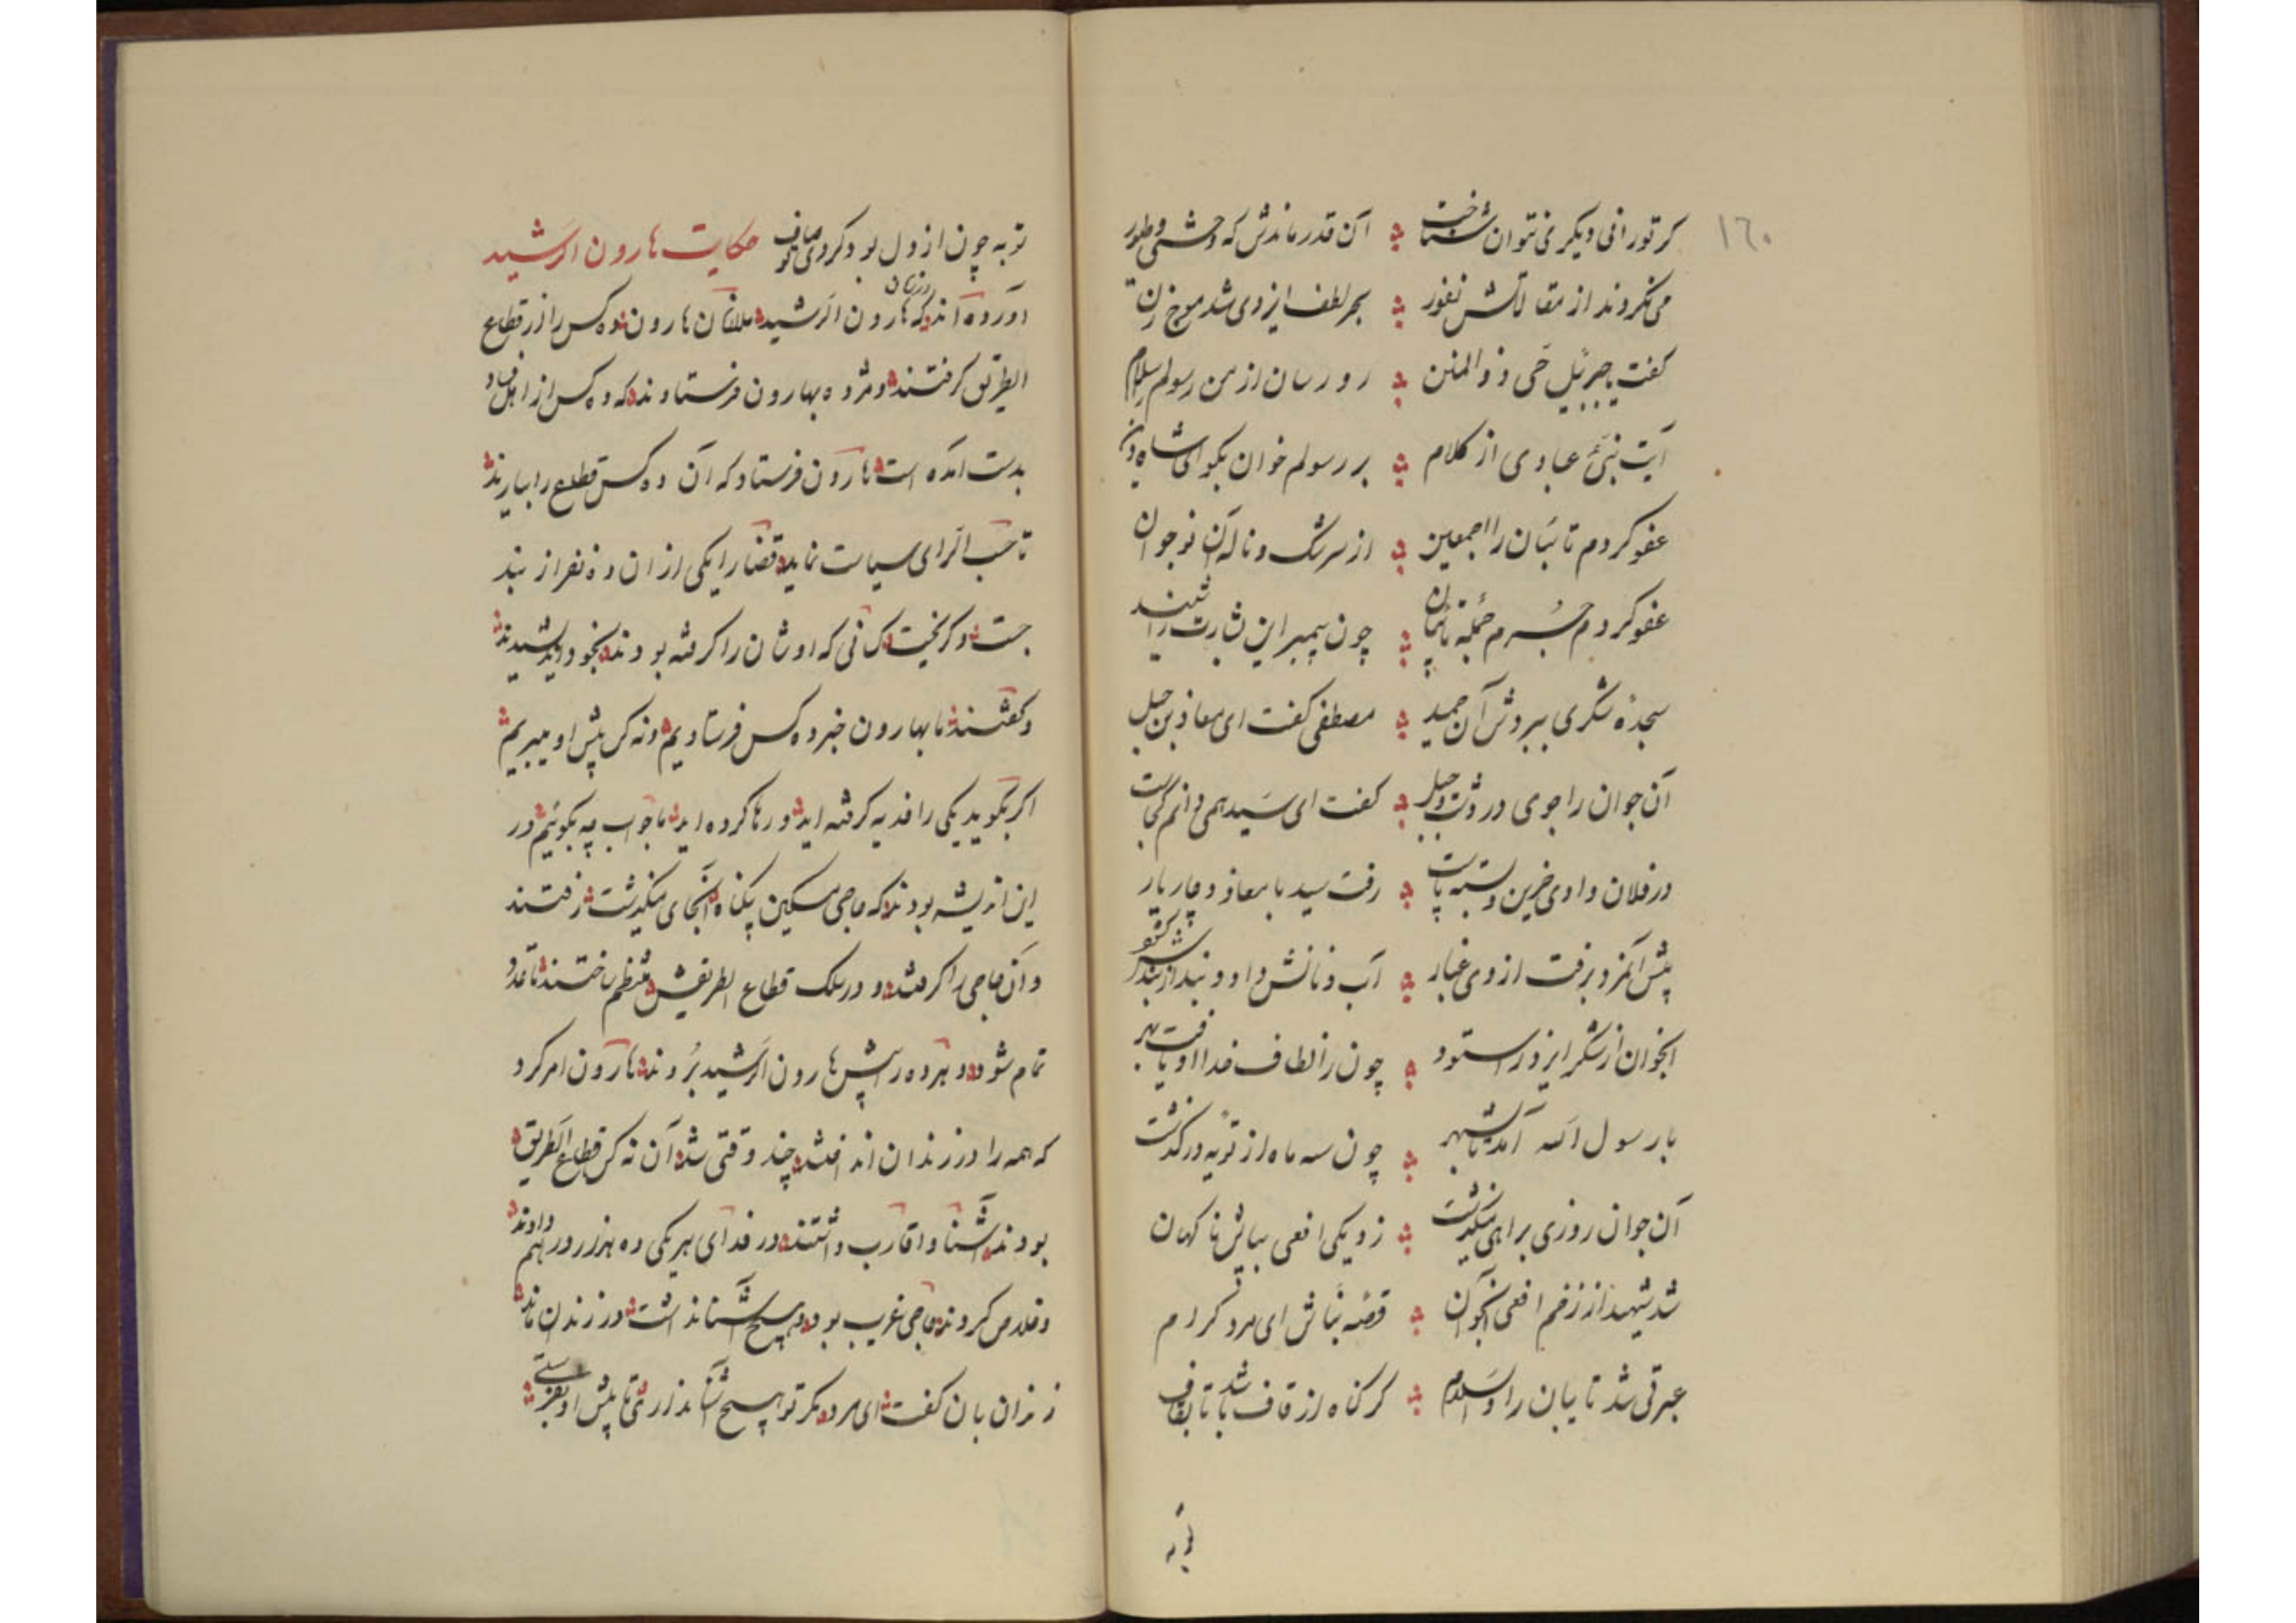 ١٦٠
کر تو رانی دیکری نتوان شناخت ؞ آن قدر ماندش که وحشی و طیور
می نکردند از مقالاتش نفور ؞ بحر لطف ایزدی شد موج زن
کفت جبرئیل حی ذوالمنن ؞ رو رسان از من رسولم را سلام
آیت نبئ عبادی از کلام ؞ بر رسولم خوان بکو ای شاه دین
عفو کردم تائبان را اجمعین ؞ از سرشک و ناله آن نوجوان
عفو کردم جرم جمله تائبان ؞ چون پیمبر این بشارت را شنید
سجدۀ شکری ببردش آن حمید ؞ مصطفی کفت ای معاذ بن جبل
آن جوان را جوی در دشت و جبل ؞ کفت ای سید همی دانم کجاست
در فلان وادی حزین و بسته پاست ؞ رفت سید با معاذ و چار یار
پیش آنمرد برفت از وی غبار ؞ آب و نانش داد و بند از بندش کشود
آنجوان از شکر ایزد را ستود ؞ چون ز الطاف خدا او یافت بهر
با رسول الله آمد تا بشهر ؞ چون سه ماه از توبه در کذشت
آن جوان روزی براهی میکذشت ؞ زد یکی افعی بپایش ناکهان
شد شهید از زخم افعی آنجوان ؞ قصه نباش ای مرد کرام
عبرتی شد تایبان را والسلام ؞ کر کناه از قاف باشد تا بقاف
توبه
توبه چون از دل بود کردی معاف حکایت هارون الرشید
آورده اند که در زمان هارون الرشید ملازمان هارون ده کس را از قطاع
الطریق کرفتند و مژده بهارون فرستادند که ده کس از اهل فساد
بدست آمده است هارون فرستاد که آن ده کس قطاع را بیارند
تا حسب الرای سیاست نماید قضا را یکی از ان ده نفر از بند
جست و کریخت کسانی که اوشان را کرفته بودند بخود اندیشیدند
و کفتند ما بهارون خبر ده کس فرستادیم و نه کس پیش او میبریم
اکر بکوید یکی را فدیه کرفته اید و رها کرده اید ما جواب چه بکوئیم در
این اندیشه بودند که حاجی مسکین بیکناه آنجای میکذشت رفتند
و آن حاجی را کرفتند و در سلک قطاع الطریقش منتظم ساختند تا عدد
تمام شود و هر ده را پیش هارون الرشید بردند هارون امر کرد
که همه را در زندان انداختند چند وقتی شد آن نه کس قطاع الطریق
بودند آشنا و اقارب داشتند در فدای هر یکی ده هزار درهم دادند
و خلاص کردند حاجی غریب بود و هیچ آشنا نداشت در زندان ماند
زندان بان کفت ای مرد مکر تو هیچ آشنا نداری تا پیش او بفرستی